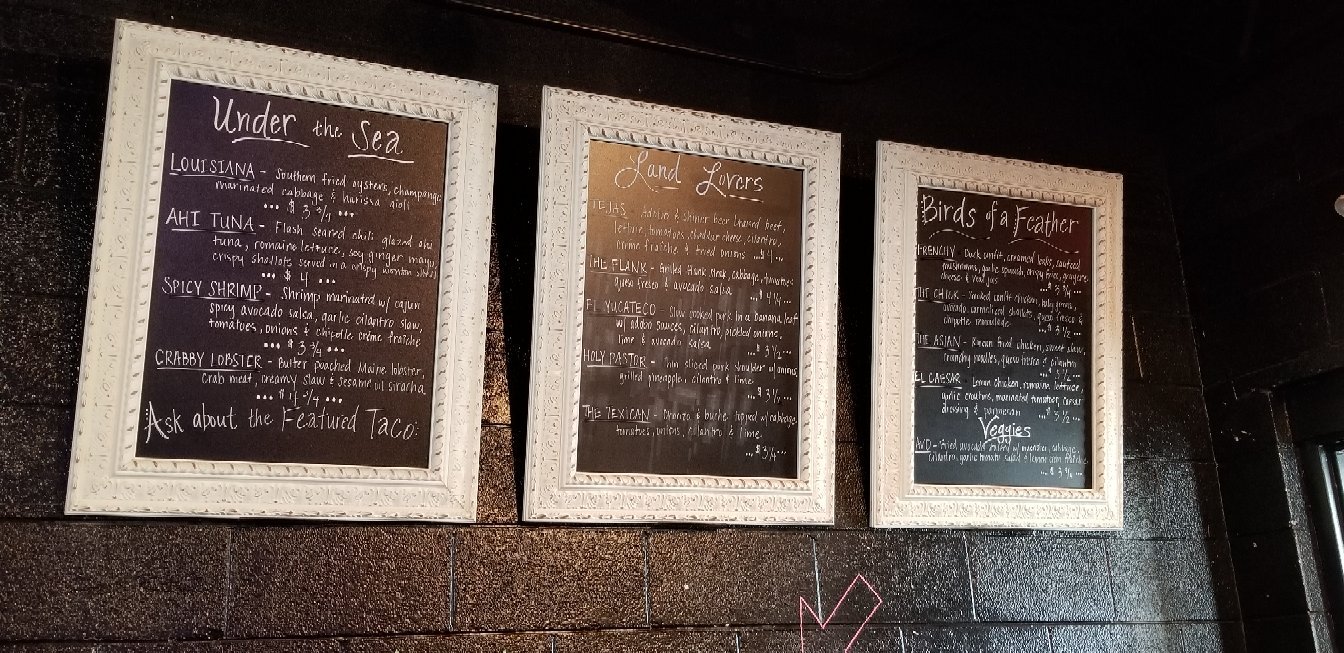 Under the Sea
LOUISIANA - Southern fried oysters, champagne
marinated cabbage & harissa aioli
... $ 3 3/4 ...
AHI TUNA - Flash seared chili glazed ahi
tuna, romaine lettuce, soy ginger mayo,
crispy shallots served in a crispy wonton
... $ 4 ...
SPICY SHRIMP - Shrimp marinated w/ cajun
spicy avocado salsa, garlic cilantro slaw,
tomatoes, onions & chipotle crème fraîche
... $ 3 3/4 ...
CRABBY LOBSTER - Butter poached Maine lobster,
crab meat, creamy slaw & sesame oil siracha
Ask about the Featured Taco
Land Lovers
TEJAS - Adobo & shiner beer braised beef,
lettuce, tomatoes, cheddar cheese, cilantro,
crème fraîche & fried onions ... $ 4 ...
THE FLANK - Grilled flank steak, cabbage, tomatoes
queso fresco & avocado salsa
... $ 4 1/4 ...
EL YUCATECO - Slow cooked pork in a banana leaf
w/ adobo sauces, cilantro, pickled onions,
lime & avocado salsa
... $ 3 1/2 ...
HOLY PASTOR - Thin sliced pork shoulder w/ onions,
grilled pineapple, cilantro & lime
... $ 3 1/4 ...
THE MEXICAN - & buche topped w/ cabbage
tomatoes, onions, cilantro & lime
... $ 3 1/4 ...
Birds of a Feather
FRENCHY - Duck confit, creamed leeks, sauteed
mushrooms, garlic spinach, crispy fries, gruyere
cheese &
... $ 3 3/4 ...
THE CHICK - Smoked confit chicken,
avocado, caramelized shallots, queso fresco &
chipotle remoulade
... $ 3 1/2 ...
THE ASIAN - Korean fried chicken, sweet slaw,
crunchy noodles, queso fresco & cilantro
EL CAESAR - Lemon chicken, romaine lettuce,
garlic croutons, marinated tomatoes, caesar
dressing & parmesan ... $ 3 1/2 ...
Veggies
AVO - Fried avocado w/ cabbage,
cilantro, garlic tomato salad & lemon